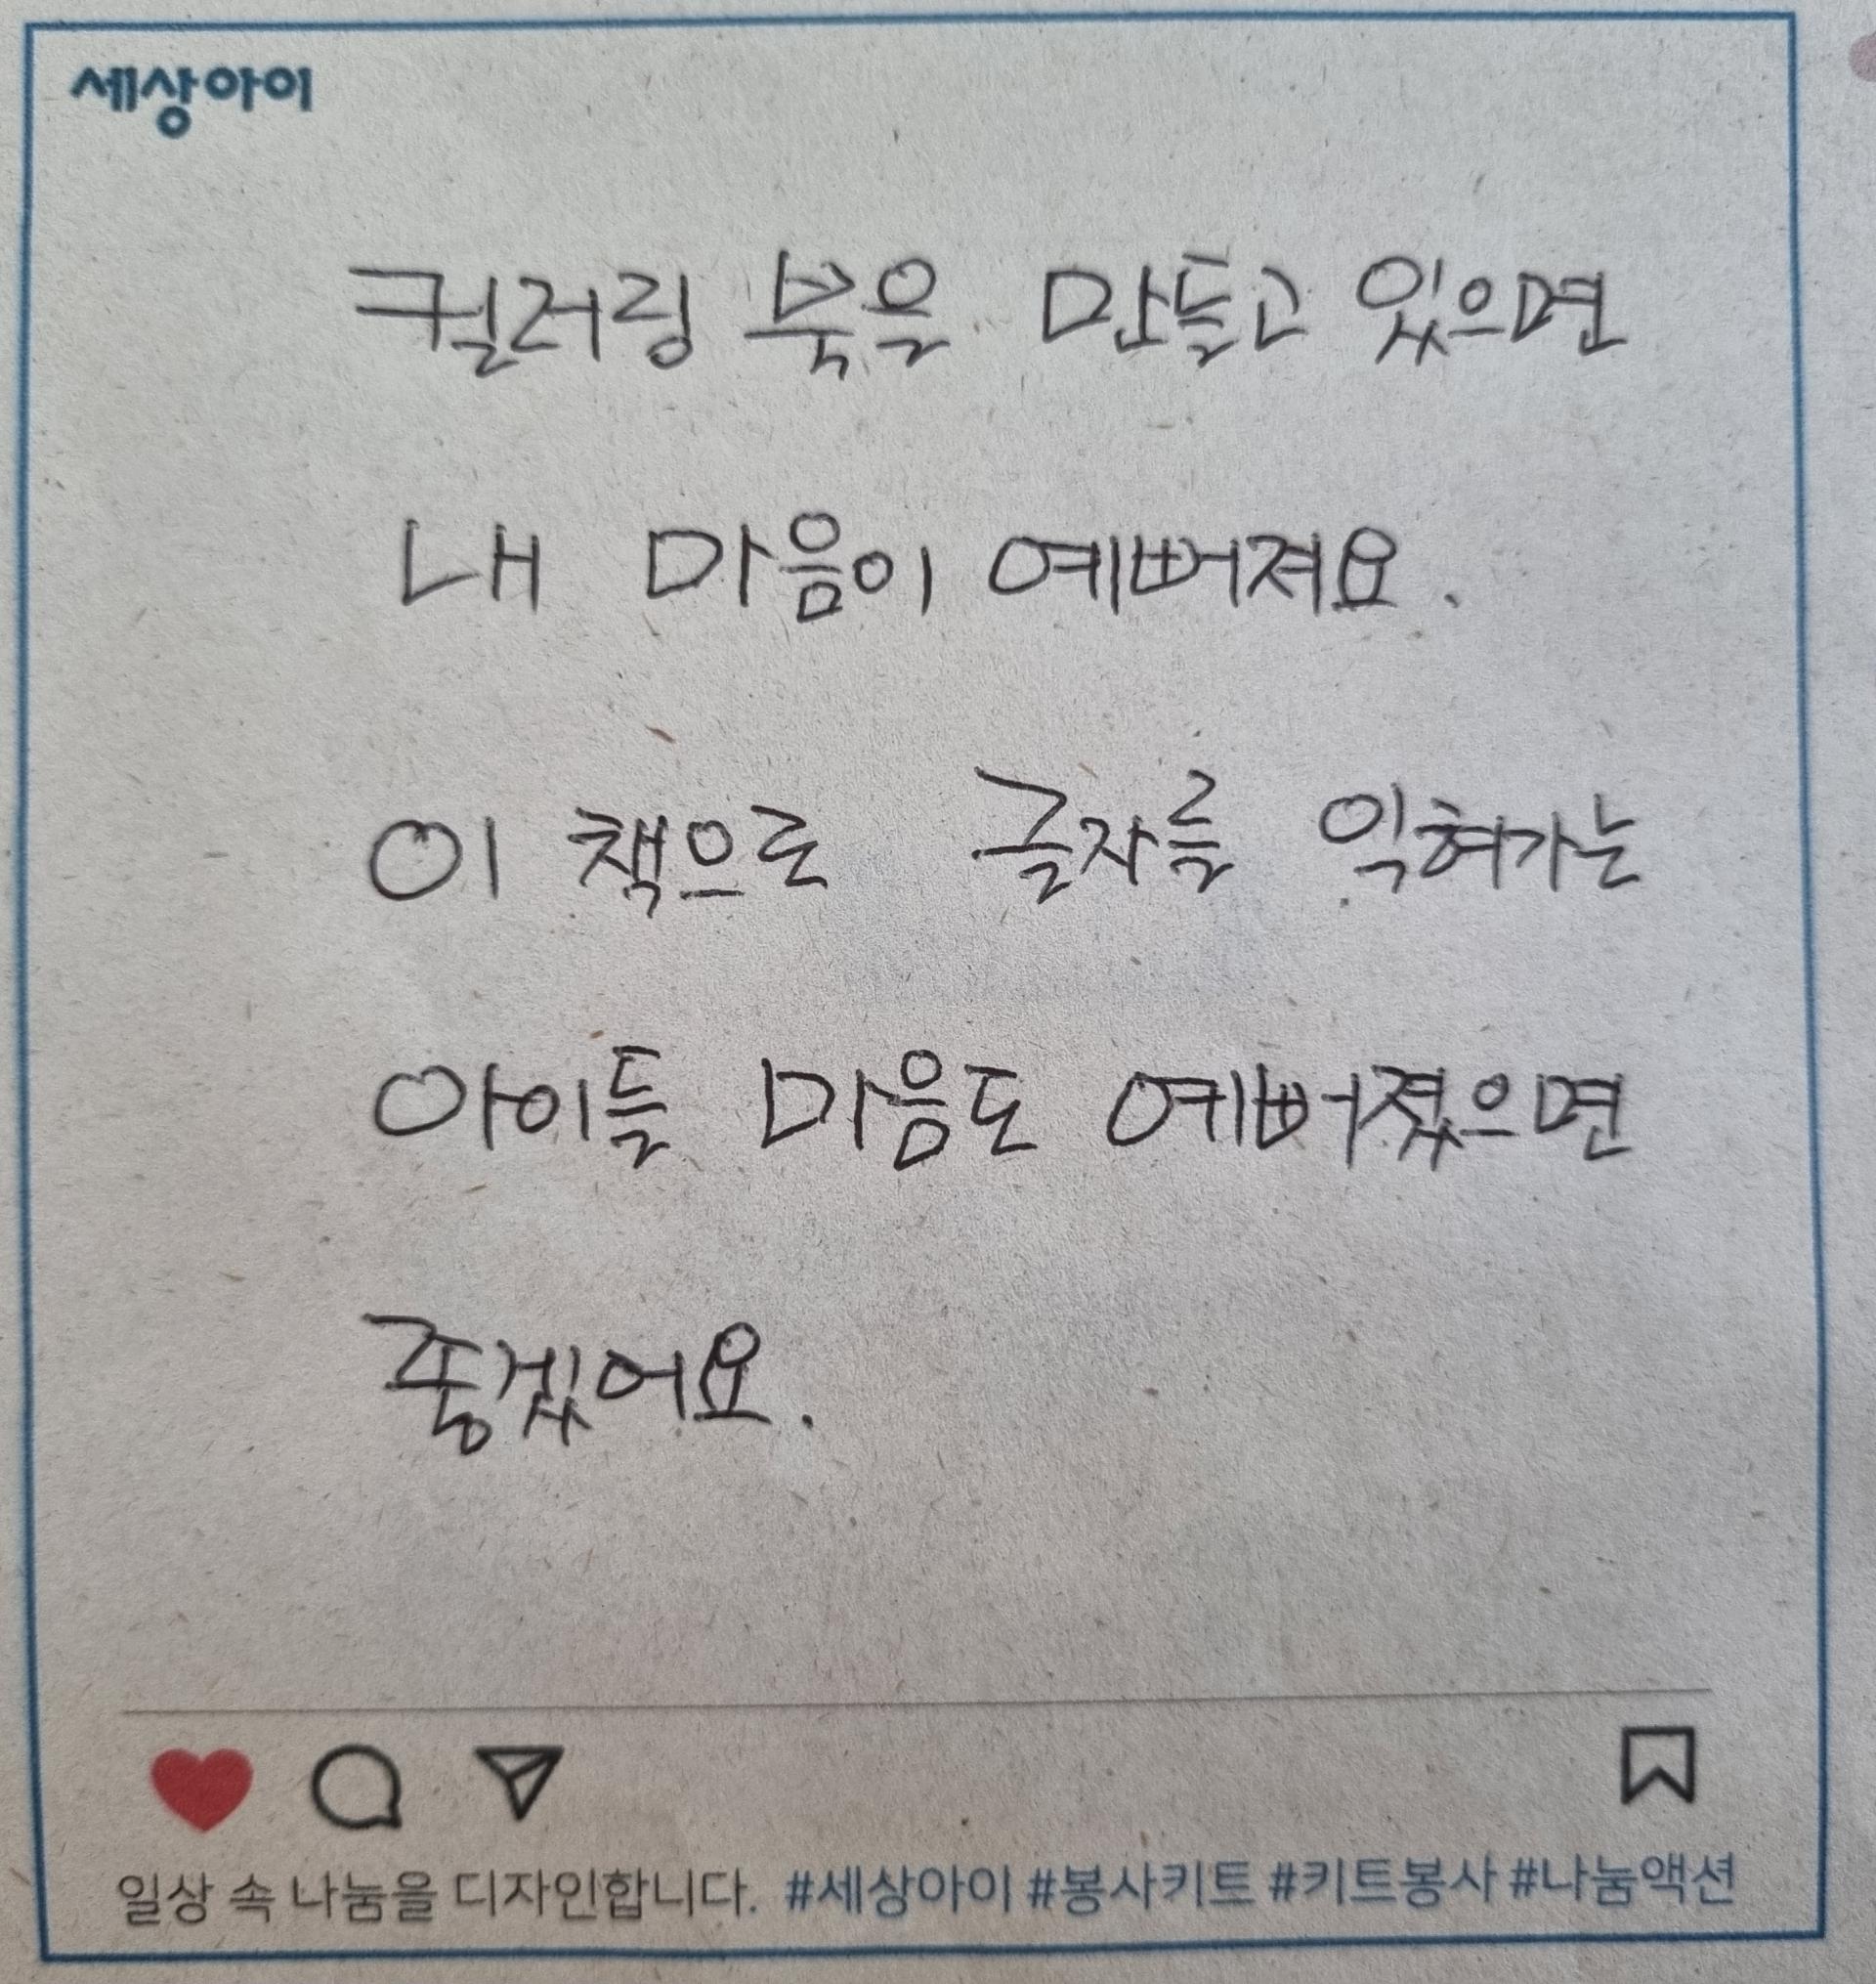 세상아이
컬러링 북을 만들고 있으면
내 마음이 예뻐져요.
이 책으로 글자를 익혀가는
아이들 마음도 예뻐졌으면
좋겠어요.
일상 속 나눔을 디자인합니다. #세상아이 #봉사키트 #키트봉사 #나눔액션